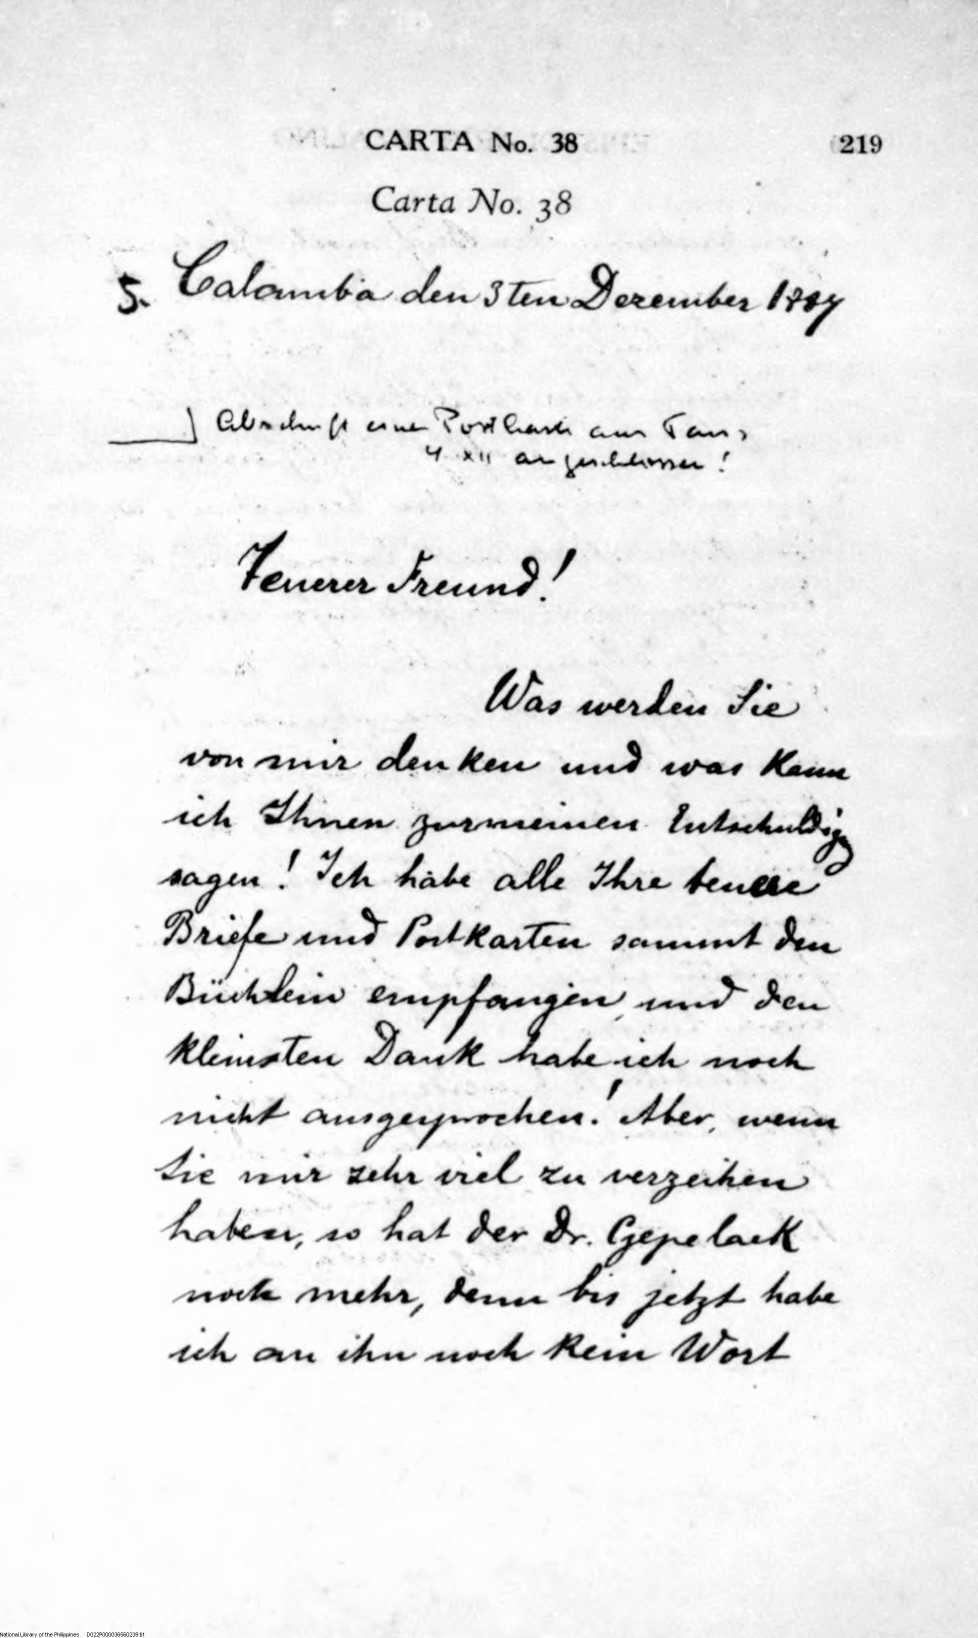 CARTA No. 38 219
Carta No. 38
5. Calamba den 3ten Dezember 1887
Abschrift einer Postkarte aus
4 XII angeschlossen!
Teuerer Freund!
Was werden Sie
von mir denken und was kann
ich Ihnen zur meinen Entschuldig
sagen! Ich habe alle Ihre teuere
Briefe und Postkarten sammt den
Büchlein empfangen, und den
kleinsten Dank habe ich noch
nicht ausgesprochen! Aber, wenn
Sie mir zehr viel zu verzeihen
haben, so hat der Dr. Czepelack
noch mehr, denn bis jetzt habe
ich an ihn noch kein Wort
National Library of the Philippines